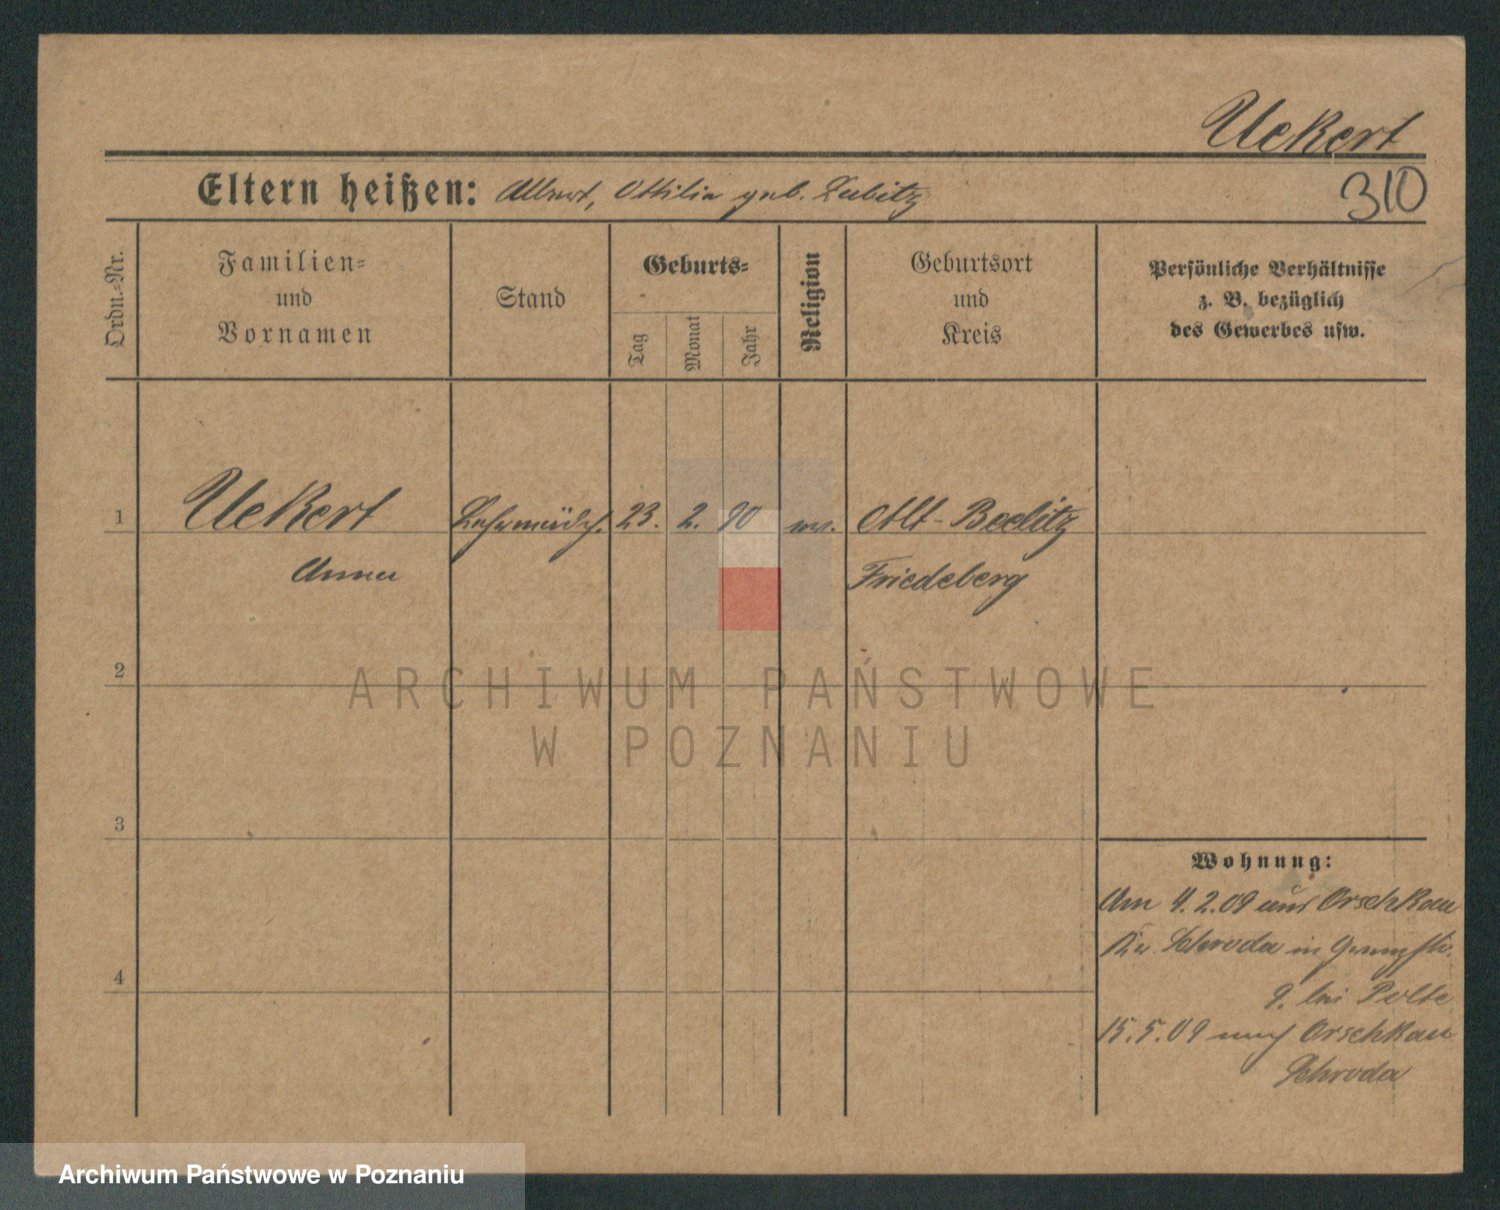 Uekert
310
Eltern heißen: Albert, Ottilie geb. Lubitz
Ordn.-Nr.
Familien- und Vornamen
Stand
Geburts-
Tag
Monat
Jahr
Religion
Geburtsort und Kreis
Persönliche Verhältnisse
z. B. bezüglich
des Gewerbes usw.
1 Uekert Lehrmädch. 23. 2. 90 ev. Alt-Beelitz
Anna Friedeberg
2
3
4
Wohnung:
Am 4.2.09 aus Orschkau
Kr. Schroda in
9. bei Polte
15.5.09 nach Orschkau
Schroda
ARCHIWUM PAŃSTWOWE
W POZNANIU
Archiwum Państwowe w Poznaniu